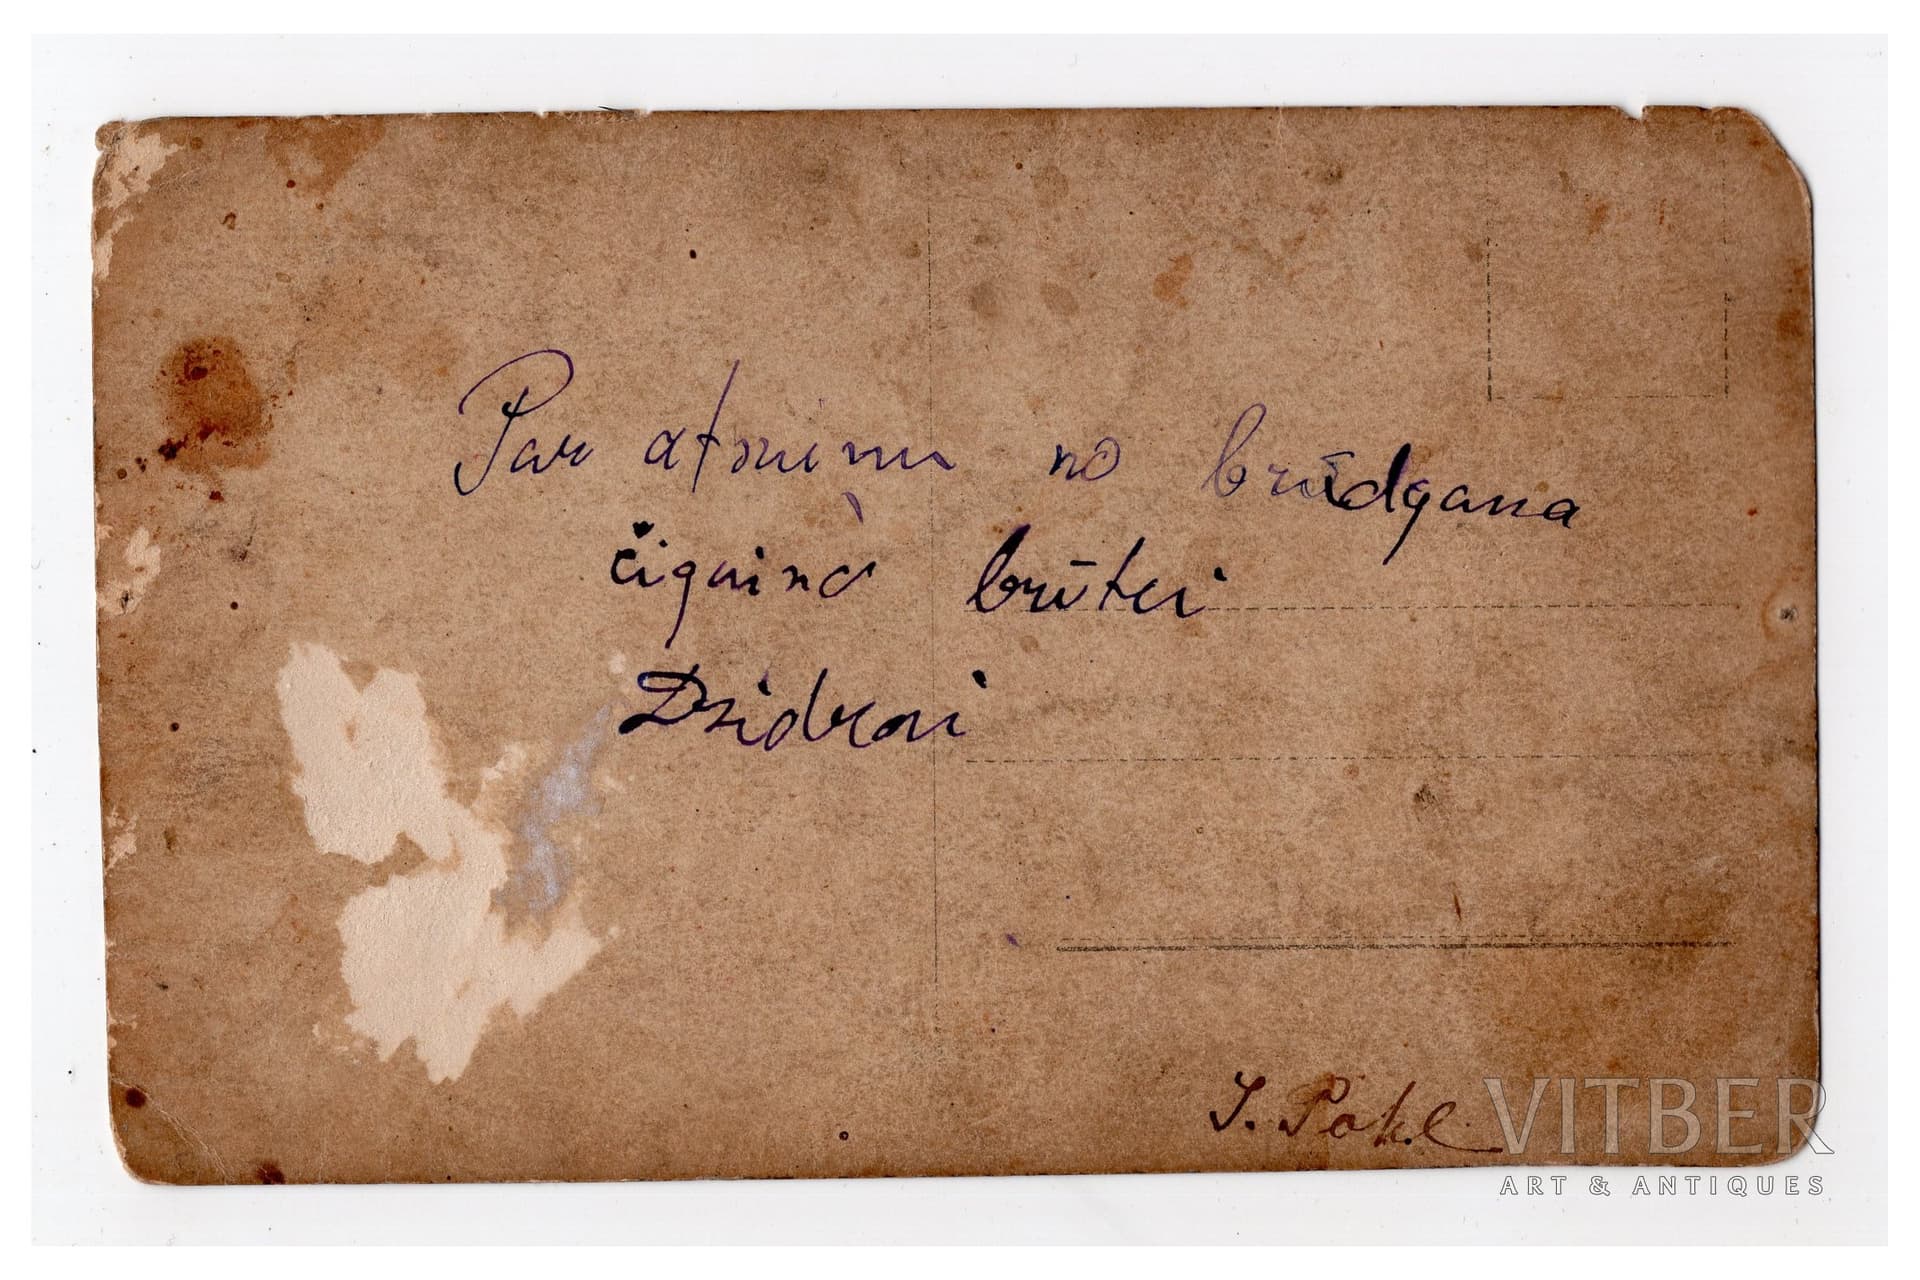 Par atmiņu no brūdgana
čigaina brūtei
Dzidrai
J. Pohl
VITBER
ART & ANTIQUES